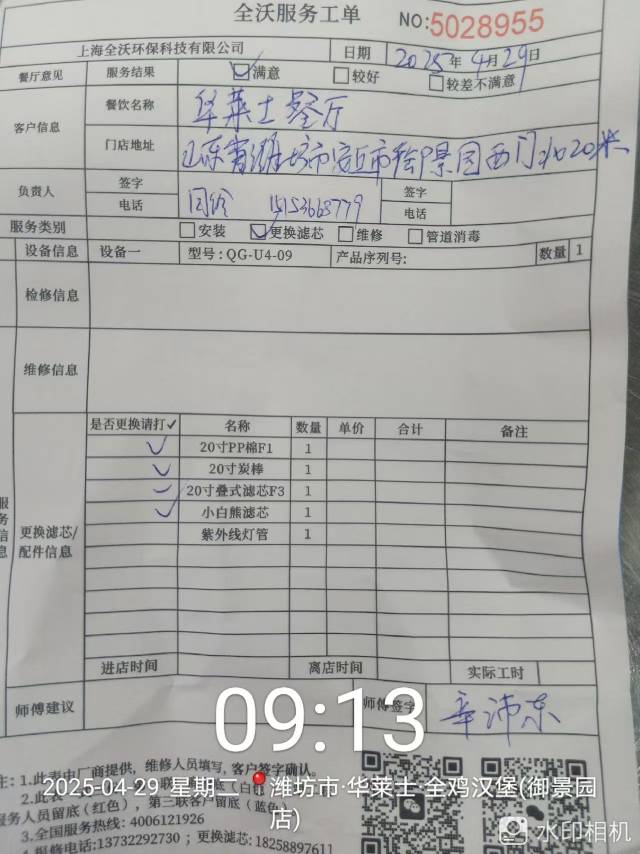 全沃服务工单
NO:5028955
上海全沃环保科技有限公司 日期 2025年4月29日
餐厅意见 服务结果 ☑满意 □较好 □较差不满意
客户信息 餐饮名称 华莱士餐厅
门店地址 山东省潍坊市 景园西门 20米
负责人 签字 签字
电话 15153668779 电话
服务类别 □安装 ☑更换滤芯 □维修 □管道消毒
设备信息 设备一 型号:QG-U4-09 产品序列号: 数量 1
检修信息
维修信息
是否更换请打✓ 名称 数量 单价 合计 备注
✓ 20寸PP棉F1 1
✓ 20寸炭棒 1
20寸叠式滤芯F3 1
✓ 小白熊滤芯 1
紫外线灯管 1
服务信息
更换滤芯/
配件信息
进店时间 离店时间 实际工时
师傅建议 师傅签字 辛沛东
09:13
注:1.此表由厂商提供，维修人员填写，客户签字确认。
2.此表 联 (白
服务人员留底(红色)，第三联客户留底(蓝色)
3.全国服务热线:4006121926
4.报修电话:13732292730；更换滤芯:18258897611
2025-04-29 星期二 潍坊市·华莱士·全鸡汉堡(御景园
店)
水印相机